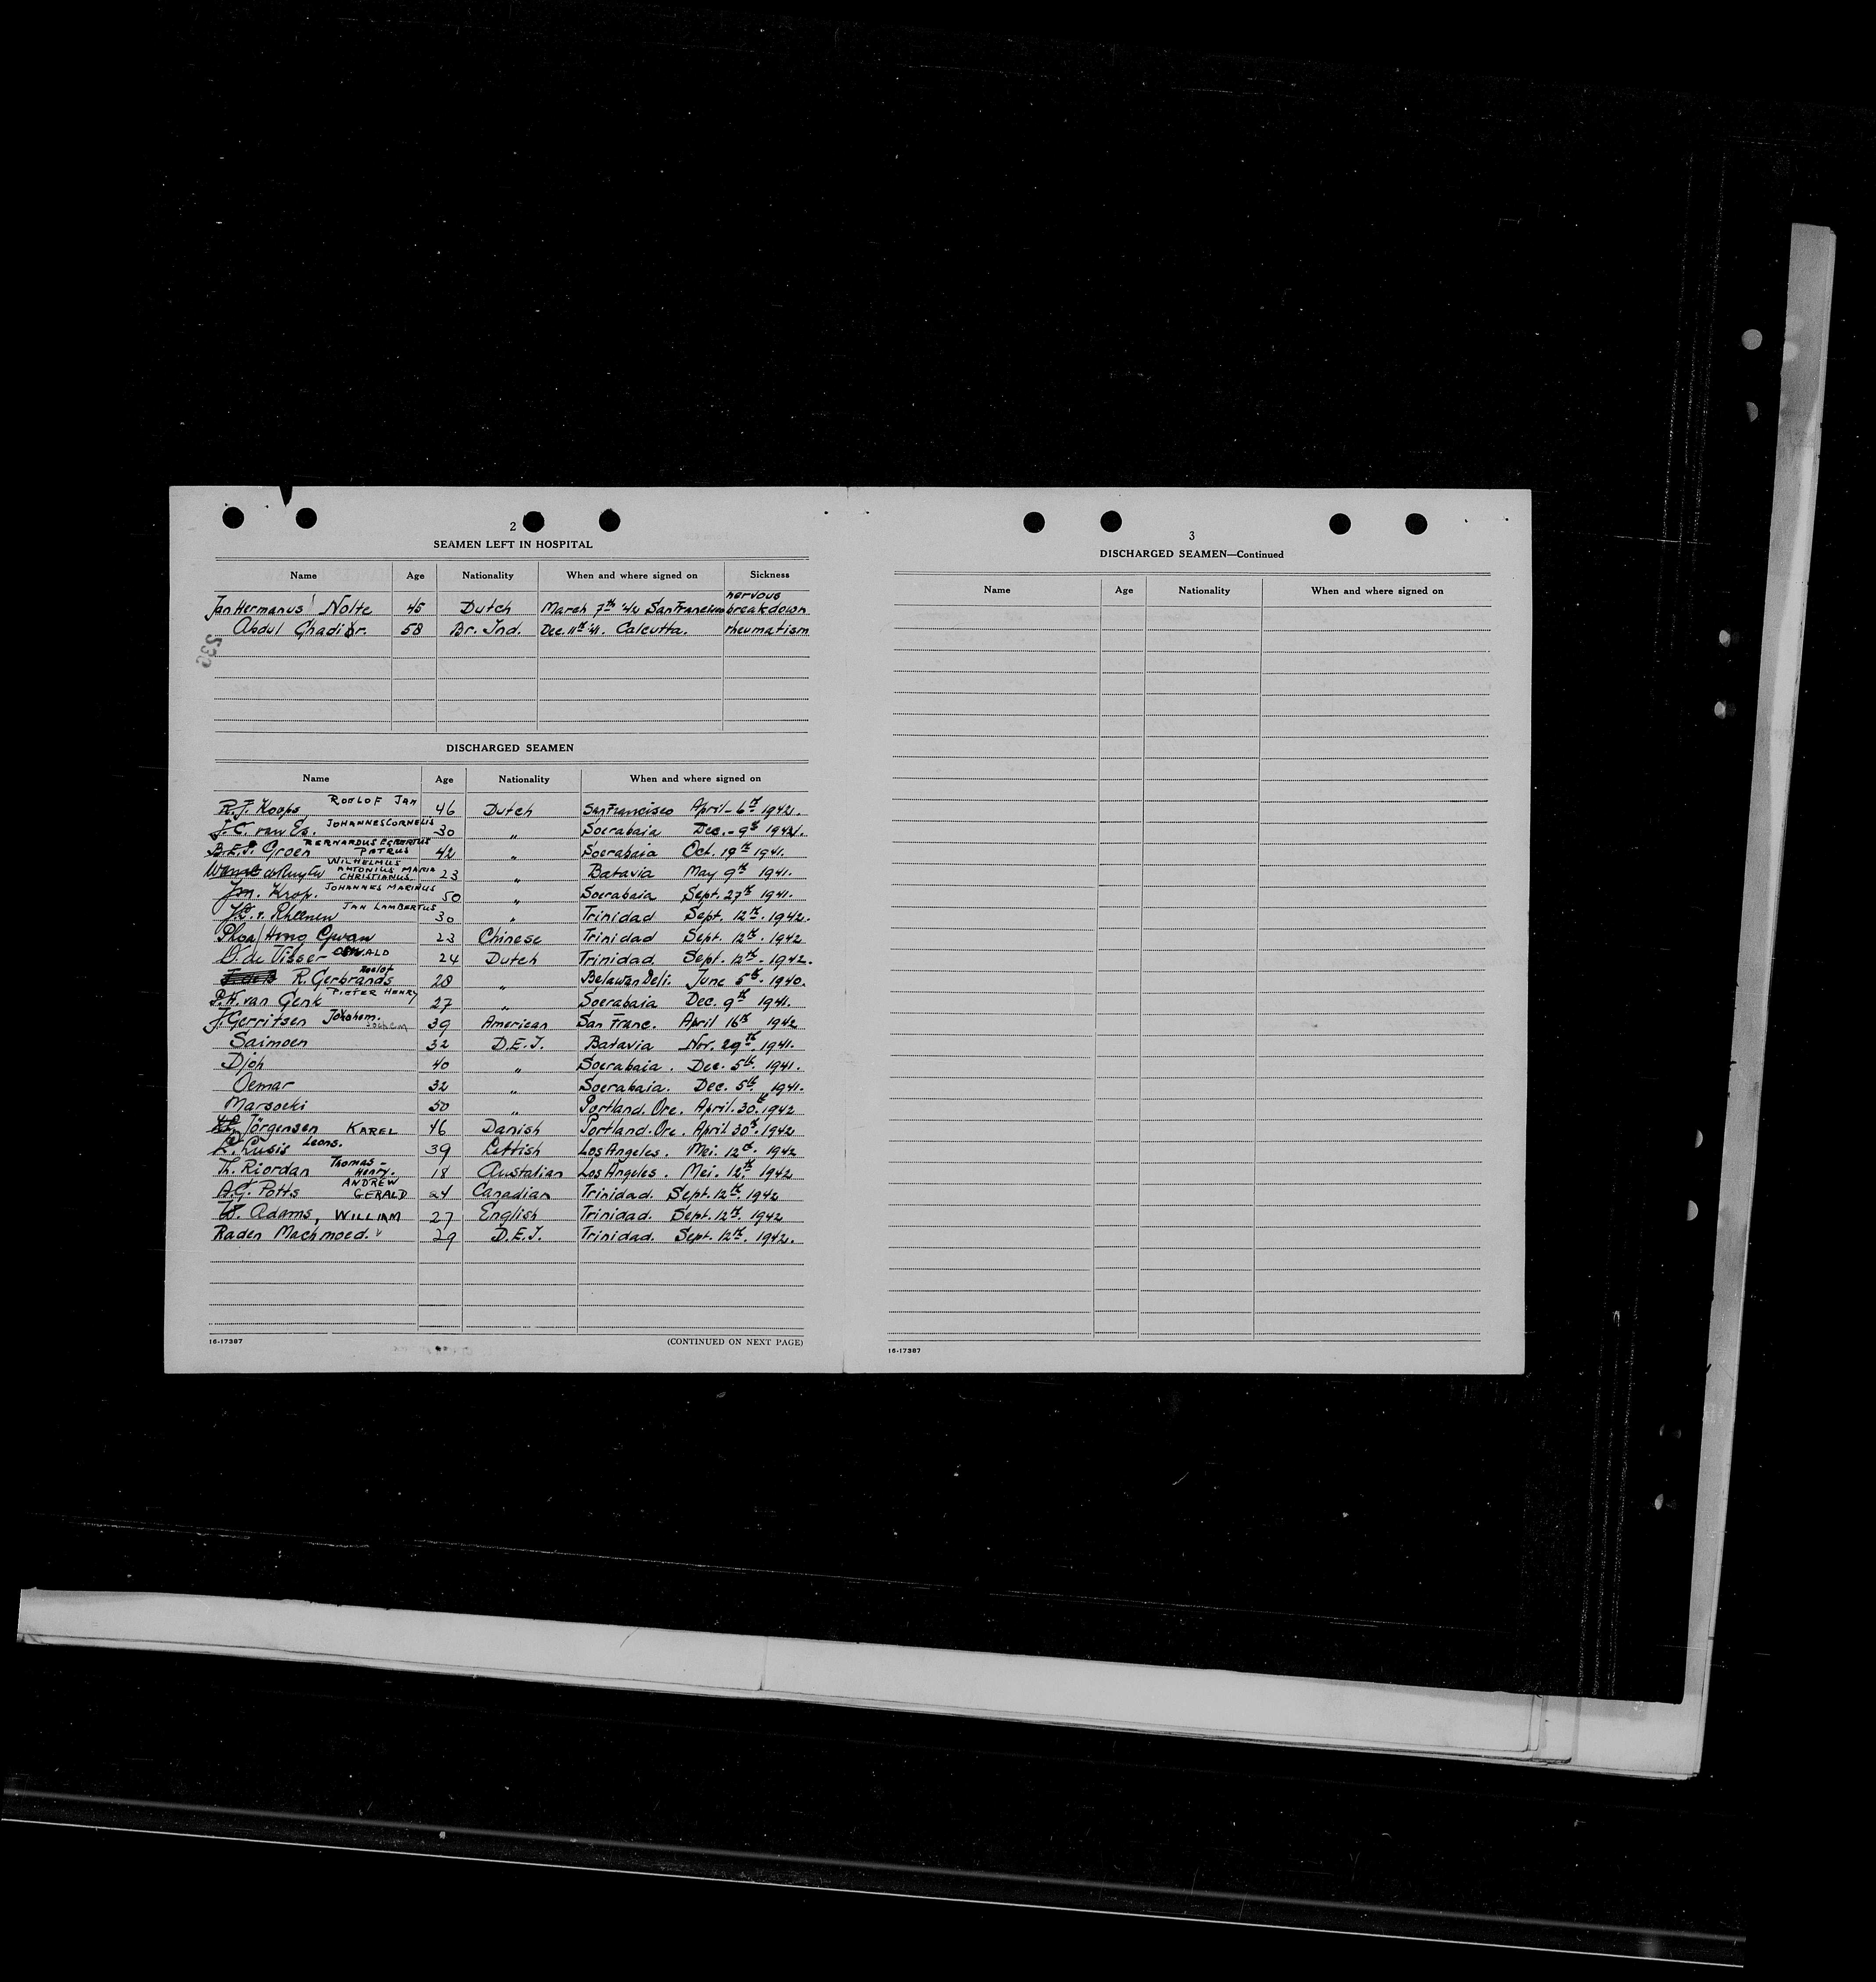 2
SEAMEN LEFT IN HOSPITAL
Name Age Nationality When and where signed on Sickness
nervous
Jan Hermanus Nolte 45 Dutch March 7th '42 San Francisco breakdown
Abdul Ghadir. 58 Br. Ind. Dec. 11th '41. Calcutta. rheumatism
DISCHARGED SEAMEN
Name Age Nationality When and where signed on
R.J. Koops ROELOF JAN 46 Dutch San Francisco April - 6th 1942.
J.C. van Es. JOHANNES CORNELIS 30 " Soerabaia Dec. - 9th 1941.
B.E.P. Groen BERNARDUS EGBERTUS PETRUS 42 " Soerabaia Oct. 19th 1941.
de Ruyter WILHELMUS ANTONIUS MARIA CHRISTIANUS 23 " Batavia May 9th 1941.
J.M. Krop. JOHANNES MARINUS 50 " Soerabaia Sept. 27th 1941.
J.L. v. Rheenen JAN LAMBERTUS 30 " Trinidad Sept. 12th. 1942.
Phoa Hong Gwan 23 Chinese Trinidad Sept. 12th. 1942
O. de Visser OSWALD 24 Dutch Trinidad. Sept. 12th. 1942.
R. Gerbrands Roelof 28 " Belawan Deli. June 5th. 1940.
P.H. van Genk PIETER HENRY 27 " Soerabaia Dec. 9th 1941.
J. Gerritsen Jochem 39 American San Franc. April 16th 1942
Saimoen 32 D.E.I. Batavia Nov. 29th. 1941.
Djoh 40 " Soerabaia. Dec. 5th. 1941.
Oemar 32 " Soerabaia. Dec. 5th. 1941.
Marsoeki 50 " Portland. Ore. April. 30th. 1942
Jörgensen KAREL 46 Danish Portland. Ore. April 30th. 1942
L. Lusis Leons. 39 Lettish Los Angeles. Mei. 12th. 1942
Th. Riordan Thomas - Henry. 18 Australian Los Angeles. Mei. 12th. 1942
A.G. Potts ANDREW GERALD 24 Canadian Trinidad. Sept. 12th. 1942
W. Adams, WILLIAM 27 English Trinidad. Sept. 12th. 1942
Raden Machmoed. 29 D.E.I. Trinidad. Sept. 12th. 1942.
16-17387 (CONTINUED ON NEXT PAGE)
3
DISCHARGED SEAMEN—Continued
Name Age Nationality When and where signed on
16-17387